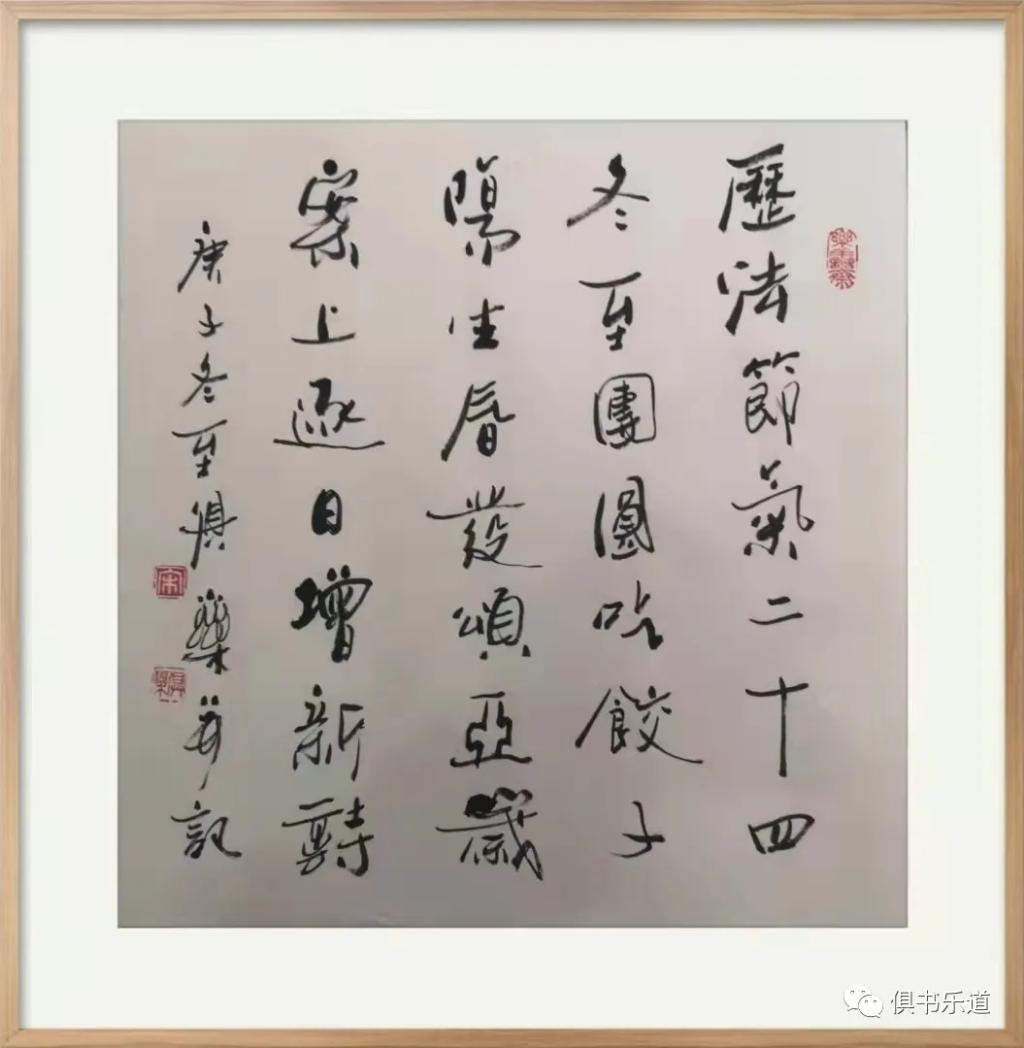 歷法節氣二十四
冬至團圓吃餃子
陽生春發頌亞歲
案上逐日增新詩
庚子冬至俱樂并記
宋
俱书乐道